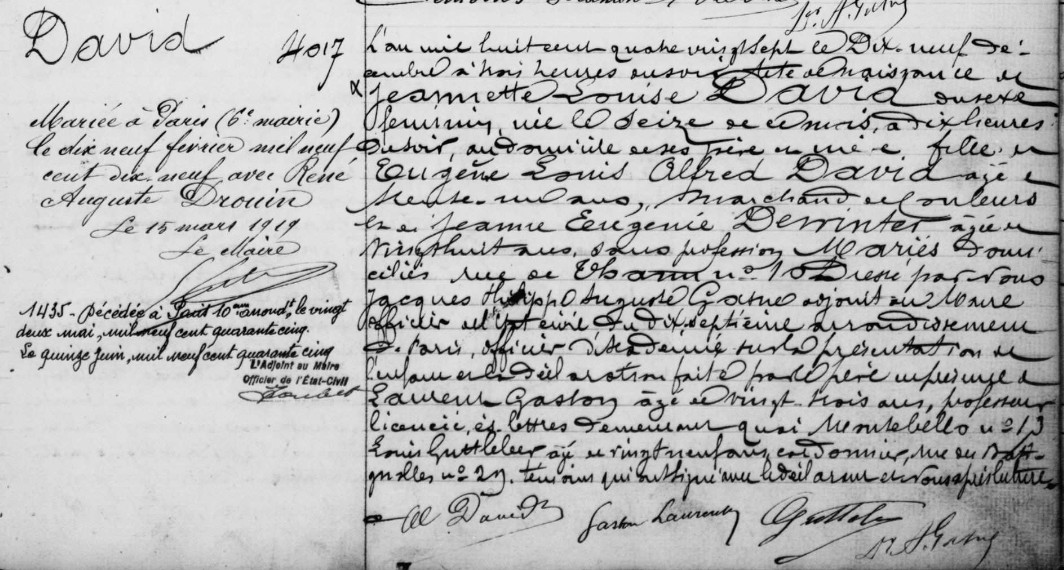 David
4017
Mariée à Paris (6e mairie)
le dix neuf février mil neuf
cent dix-neuf avec René
Auguste Drouin
Le 15 mars 1919
Le Maire
1435 - Décédée à Paris 10e arrond.t, le vingt
deux mai, mil neuf cent quarante cinq.
Le quinze juin, mil neuf cent quarante cinq
L'Adjoint au Maire
Officier de l'État-Civil
L'an mil huit cent quatre vingt sept le Dix-neuf dé-
cembre à trois heures du soir, acte de naissance de
Jeannette Louise David du sexe
féminin, née le seize de ce mois, à dix heures
du soir, au domicile de ses père et mère fille de
Eugène Louis Alfred David âgé de
trente-un ans, marchand de couleurs
et de Jeanne Eugénie Dewinter âgée de
vingt huit ans, sans profession Mariés domi-
ciliés rue de no 10 Dressé par Nous
Jacques Philippe Auguste Gasne adjoint au Maire
officier de l'état civil du dix-septième arrondissement
de Paris, officier d'Académie sur la présentation de
l'enfant et la déclaration faite par le père en présence de
Laurent Gaston âgé de vingt-trois ans, professeur
licencié ès lettres demeurant quai Montebello no 13
Louis Guttleber âgé de vingt neuf ans, cordonnier, rue des Bati-
gnolles no 29. témoins qui ont signé avec le déclarant et Nous après lecture.
A David
Gaston Laurent